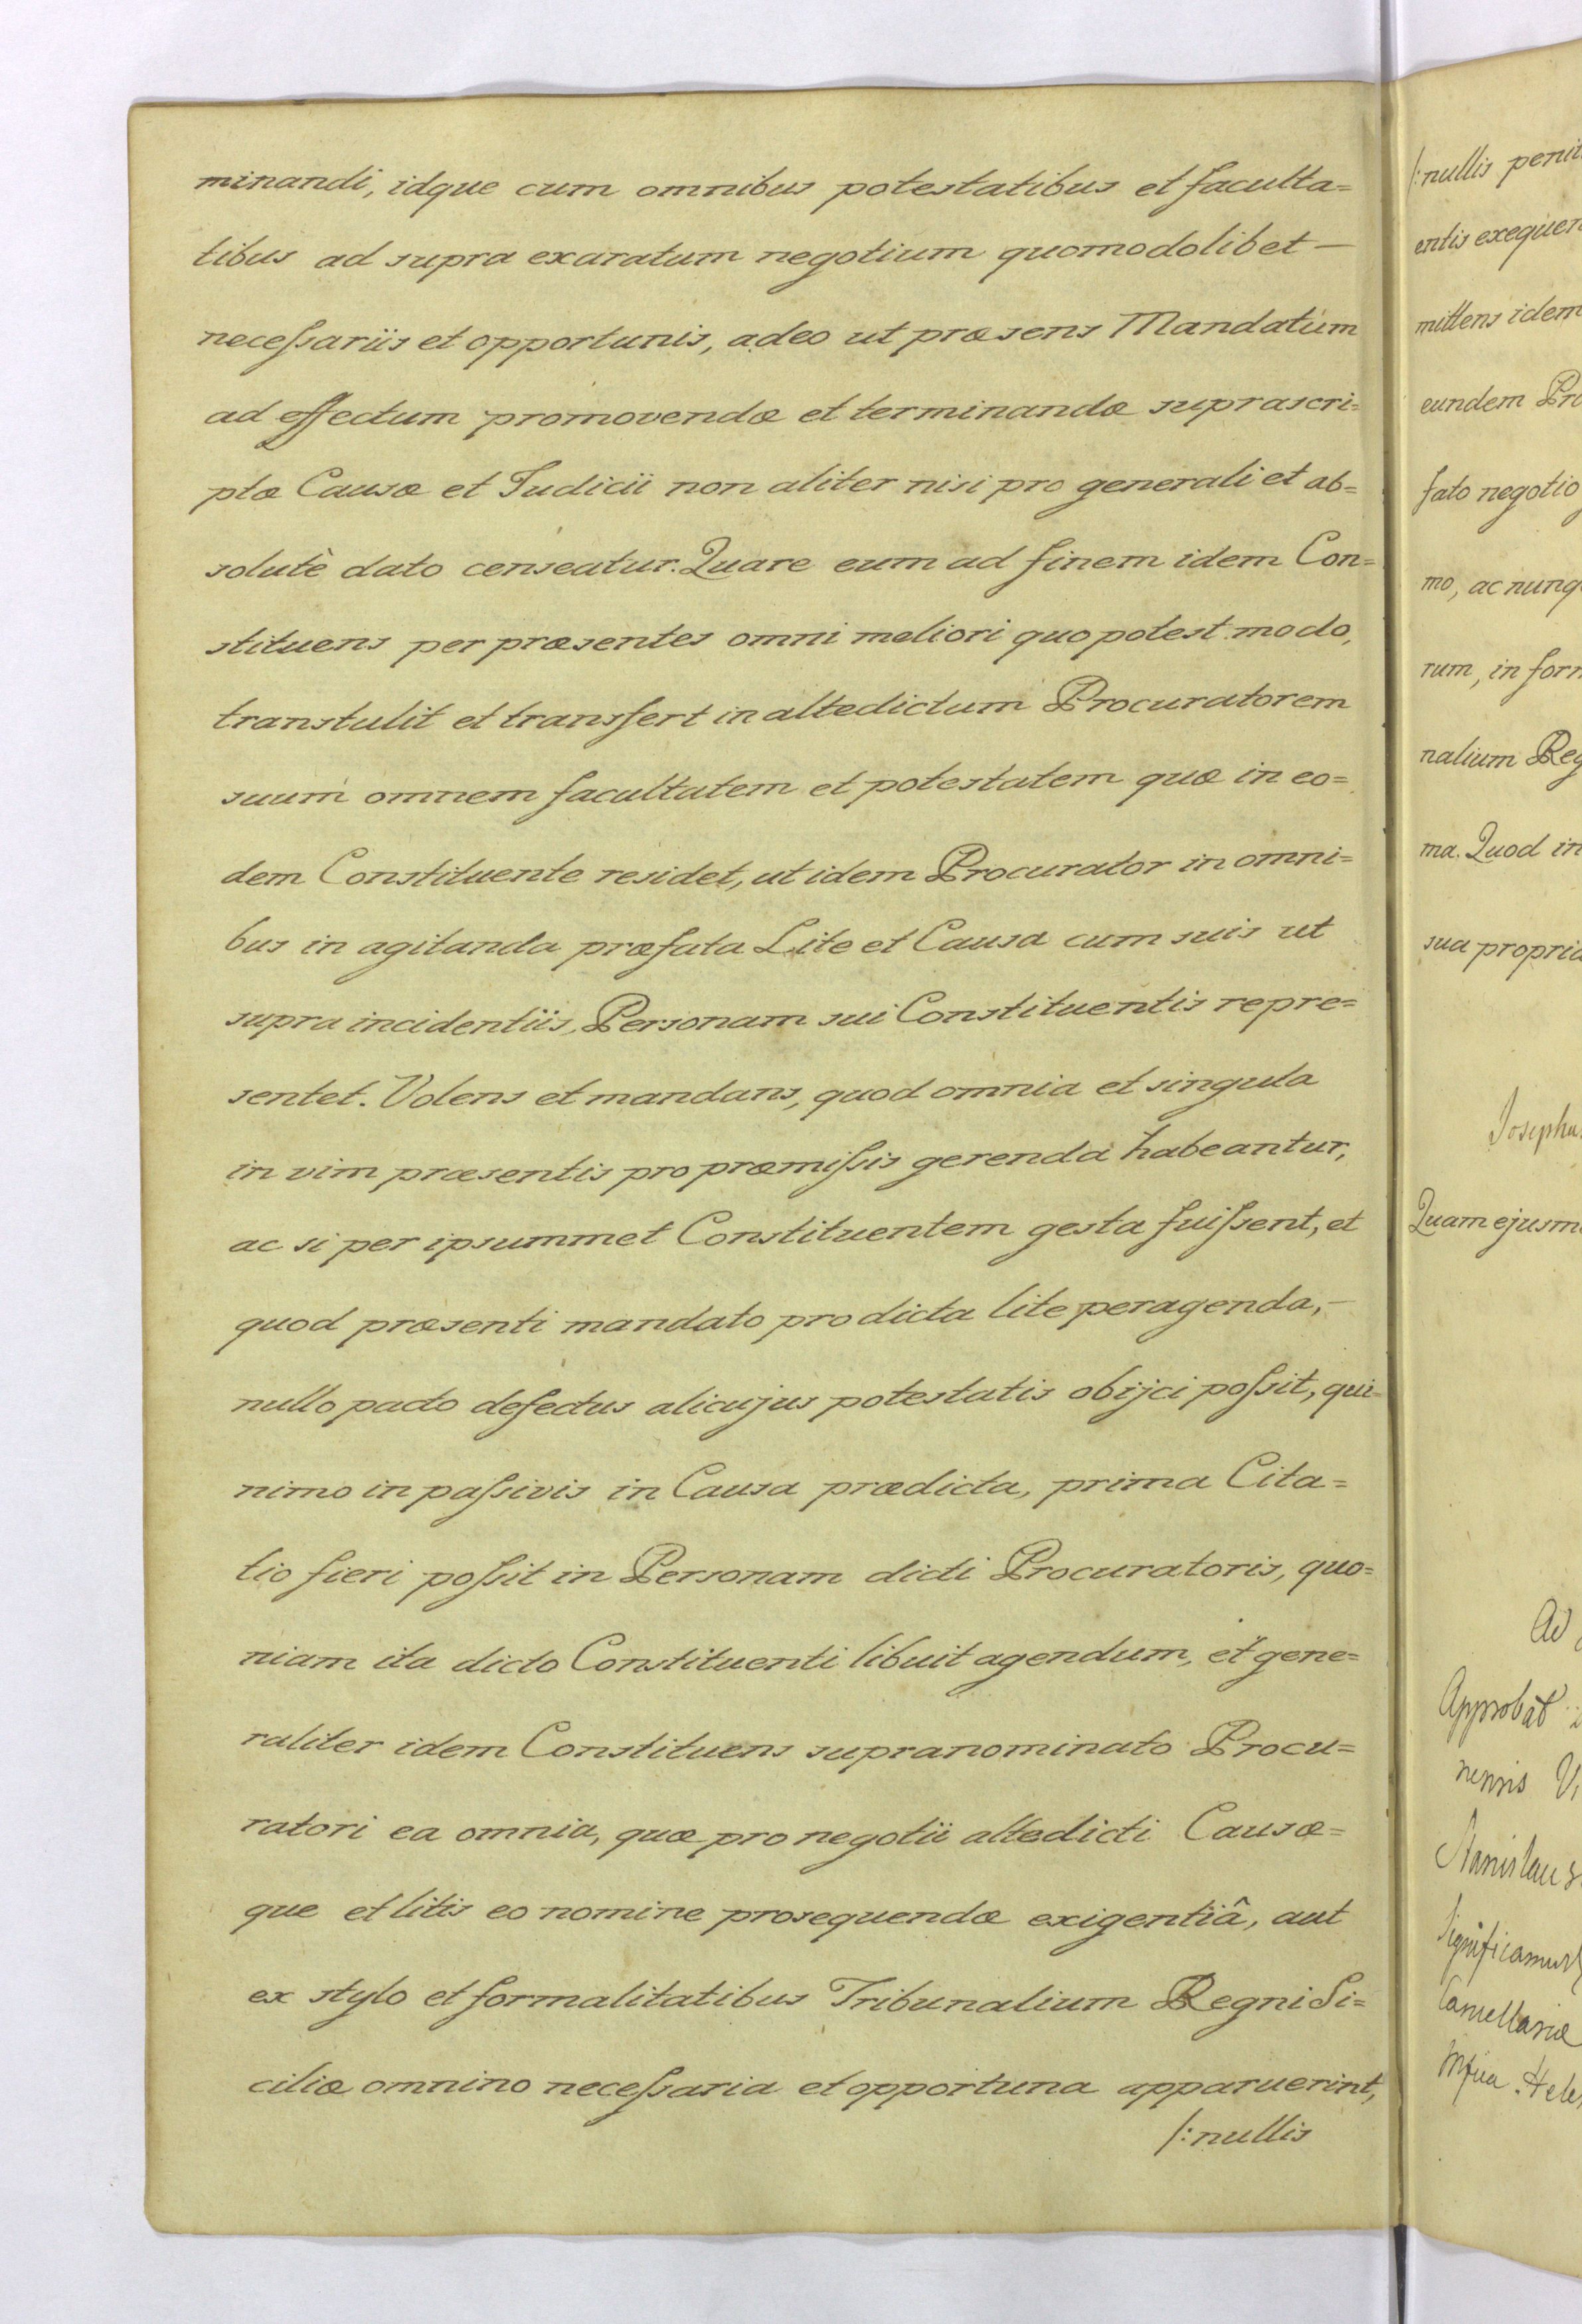 minandi, idque cum omnibus potestatibus et faculta=
tibus ad supra exaratum negotium quomodolibet —
neceſsariis et opportunis, adeo ut præsens Mandatum
ad effectum promovendæ et terminandæ suprascri=
ptæ Causæ et Iudicii non aliter nisi pro generali et ab=
solutè dato censeatur. Quare eum ad finem idem Con=
stituens per præsentes omni meliori quo potest modo,
transtulit et transfert in altedictum Procuratorem
suum omnem facultatem et potestatem quæ in eo=
dem Constituente residet, ut idem Procurator in omni=
bus in agitanda præfata Lite et Causa cum suis ut
supra incidentiis, Personam sui Constituentis repre=
sentet. Volens et mandans, quod omnia et singula
in vim præsentis pro præmiſsis gerenda habeantur,
ac si per ipsummet Constituentem gesta fuiſsent, et
quod præsenti mandato pro dicta lite peragenda, —
nullo pacto defectus alicujus potestatis obijci poſsit, qui=
nimo in paſsivis in Causa prædicta, prima Cita=
tio fieri poſsit in Personam dicti Procuratoris, quo=
niam ita dicto Constituenti libuit agendum, et gene=
raliter idem Constituens supranominato Procu=
ratori ea omnia, quæ pro negotii altedicti Causæ=
que et litis eo nomine prosequendæ exigentiâ, aut
ex stylo et formalitatibus Tribunalium Regni Si=
ciliæ omnino neceſsaria et opportuna apparuerint,
/: nullis
/: nullis penit
entis exequen
mittens idem
eundem Pro
fato negotio
mo, ac nunq
rum, in form
nalium Reg
ma. Quod in
sua propria
Josephu
Quam ejusm
Ad
Approbat
nensis V
Stanislaus
Significamus
Cancellariæ